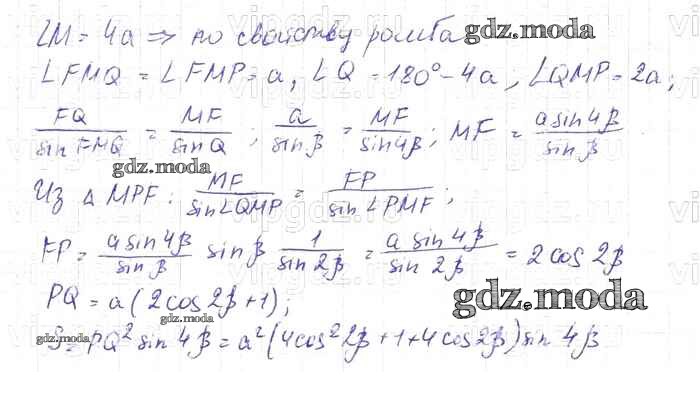 ∠M = 4a ⇒ по свойству ромба gdz.moda
∠FMQ = ∠FMP = a, ∠Q = 180° - 4a, ∠QMP = 2a;
FQ/sin FMQ = MF/sin Q; a/sin β = MF/sin 4β; MF = a sin 4β/sin β
gdz.moda
Из △ MPF: MF/sin∠QMP = FP/sin ∠PMF;
FP = a sin 4β/sin β sin β 1/sin 2β = a sin 4β/sin 2β = 2 cos 2β
PQ = a(2cos 2β + 1); gdz.moda
gdz.moda
S = PQ² sin 4β = a²(4cos² 2β + 1 + 4 cos 2β) sin 4β
gdz.moda